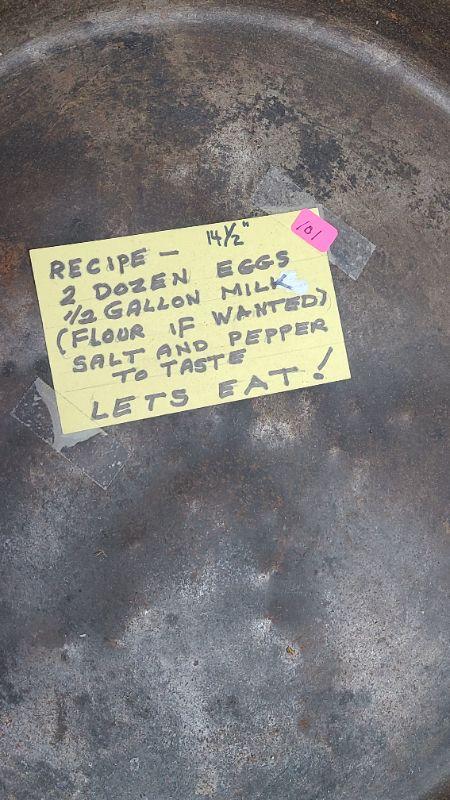 14 1/2"
101
RECIPE —
2 DOZEN EGGS
1/2 GALLON MILK
(FLOUR IF WANTED)
SALT AND PEPPER
TO TASTE
LETS EAT!